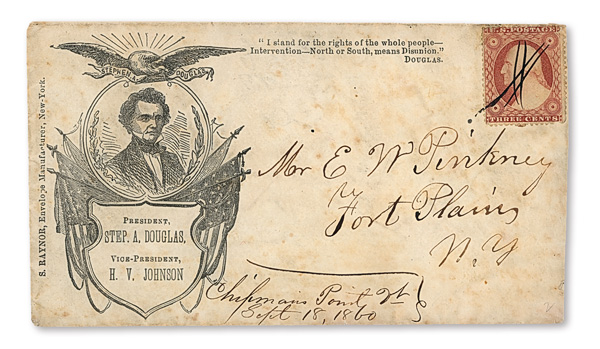 "I stand for the rights of the whole people—
Intervention—North or South, means Disunion."
DOUGLAS.
U.S. POSTAGE
THREE CENTS
STEPHEN A DOUGLAS
S. RAYNOR, Envelope Manufacturer, New-York.
PRESIDENT,
STEP. A. DOUGLAS,
VICE-PRESIDENT,
H. V. JOHNSON
Mr E W Pinkney
Fort Plain
N.Y
Chipmans Point Vt
Sept 18, 1860